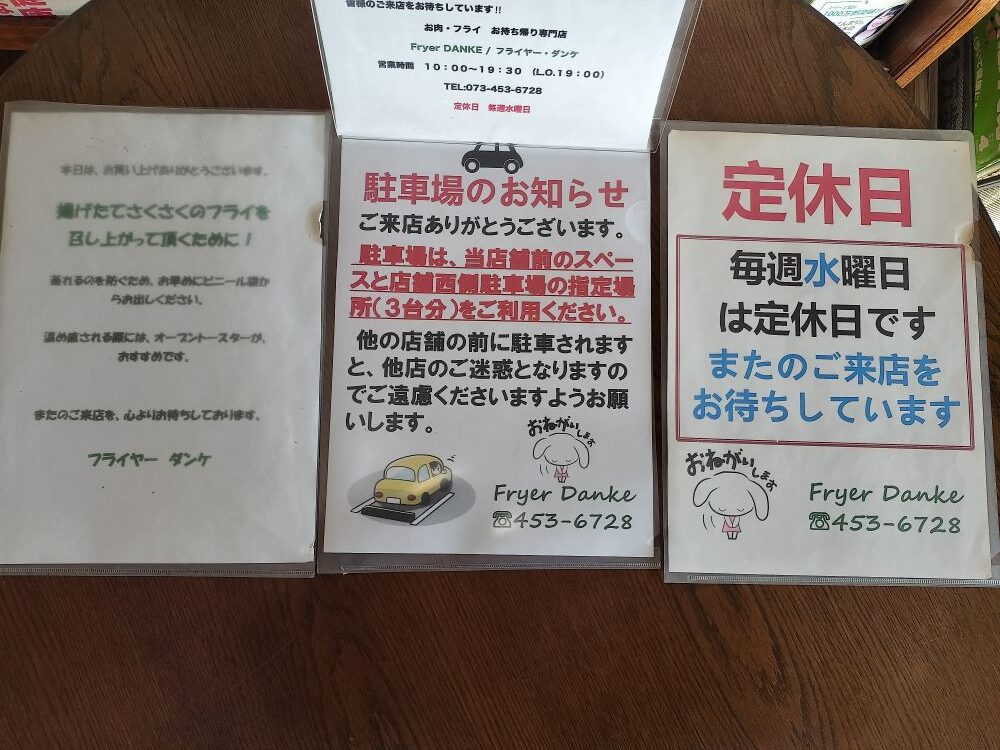 皆様のご来店をお待ちしています!!
お肉・フライ お持ち帰り専門店
Fryer DANKE / フライヤー・ダンケ
営業時間 10:00～19:30 (L.O.19:00)
TEL:073-453-6728
定休日 毎週水曜日
本日は、お買い上げありがとうございます。
揚げたてさくさくのフライを
召し上がって頂くために！
蒸れるのを防ぐため、お早めにビニール袋か
らお出しください。
温め直される際には、オーブントースターが、
おすすめです。
またのご来店を、心よりお待ちしております。
フライヤー ダンケ
駐車場のお知らせ
ご来店ありがとうございます。
駐車場は、当店舗前のスペー
スと店舗西側駐車場の指定場
所(３台分)をご利用ください。
他の店舗の前に駐車されます
と、他店のご迷惑となりますの
でご遠慮くださいますようお願
いします。
おねがいします
Fryer Danke
☎453-6728
定休日
毎週水曜日
は定休日です
またのご来店を
お待ちしています
おねがいします
Fryer Danke
☎453-6728